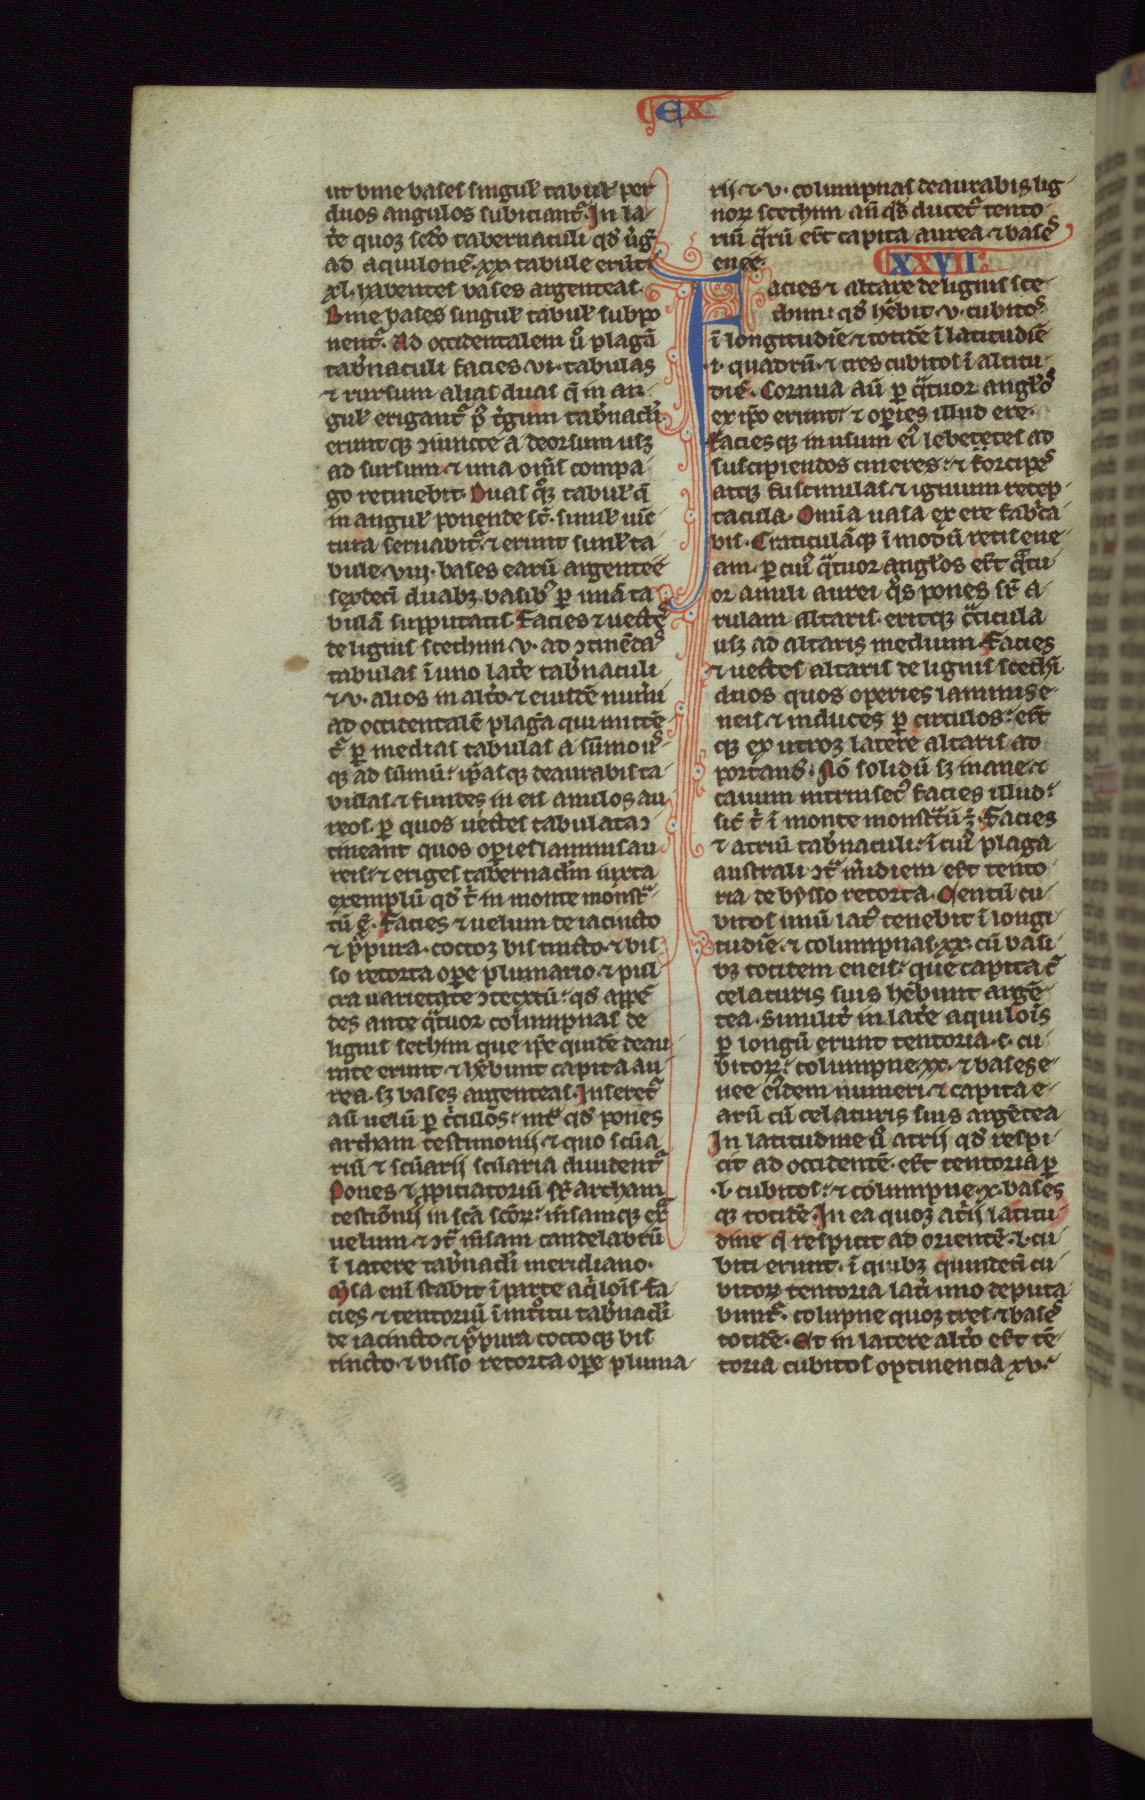 EX
ut bine bases singul' tabul' per
duos angulos subiciant᷑. In la-
t̾e quoq₃ sc̄do tabernaculi qd̄ u̾git
ad aquilonē. xx. tabule erūt
xl. habentes bases argenteas.
Bine bases singul' tabul' subpo
nent᷑. Ad occidentalem u̾o plagā
tab̾naculi facies vi. tabulas
⁊ rursum alias duas q̄ in an-
gul' erigant᷑ p̾ t̾gum tab̾nacl'i
eruntq₃ ɔiuncte a deorsum usq₃
ad sursum ⁊ una om̄s compa-
go retinebit. Duas q̊q₃ tabul' q̄
in angul' ponende st̄. simil' iūc
tura seruabit᷑. ⁊ erunt simĺ ta
bule. viii. bases earū argentee
sexdeci duab₃ basib₃ ꝑ unā ta
bulā supputatis. Facies ⁊ uectes
de lignis scethim v. ad ɔtinēdas
tabulas ī uno lat̾e tab̾naculi
⁊ v. alios in alt̾o ⁊ eiusdē num̾i
ad occidentalē plagā qui mittē
t᷑ ꝑ medias tabulas a sūmo us
q₃ ad sūmū. ip̄asq₃ deaurabis ta
bulas ⁊ fundes in eis anulos au
reos. ꝑ quos uectes tabulata ɔ
tineant quos oꝑies laminis au
reis. ⁊ eriges tabernacl'm iuxta
exemplū qd̄ t̾ in monte monst᷑
tū ē. Facies ⁊ uelum de iacincto
⁊ p᷑pura. coccoq₃ bis tincto. ⁊ bis
so retorta oꝑe plumario. ⁊ pul
cra uarietate ɔtextū. qd̄ appē
des ante q̾tuor columpnas de
lignis sethim que ip̄e quidē deau
rate erunt ⁊ h̄ebunt capita au
rea. s₃ bases argenteas. Inseret᷑
aū uelū ꝑ c̾culos. int̾ qd̄ pones
archam testimonij ⁊ quo sc̄ua
riū ⁊ sc̄uarij sc̄uaria diuident᷑
Pones ⁊ ꝓpiciatoriū sr̄ archam
testiōnij in sc̄a sc̄or₃. m̄samq₃ ex᷑
uelum. ⁊ ɔt᷑ m̄sam candelabrū
ī latere tab̾nacl'i meridiano.
M̄sa eni stabit ī parte aq̾lois. fa-
cies ⁊ tentoriū ī int᷑tu tab̾nacl'i
de iacincto ⁊ p᷑pura coccoq₃ bis
tincto. ⁊ bisso retorta oꝑe pluma-
rii. ⁊ v. columpnas deaurabis lig
nor₃ scethim an̄ qd̄ ducet᷑ tento
riū q̾rū er̄t capita aurea ⁊ bases
enee.
XXVII.
Facies ⁊ altare de lignis sce-
thim. qd̄ h̄ebit. v. cubitos
ī longitudīe ⁊ totidē ī latitudīe
.i. quadrū. ⁊ tres cubitos ī altitu
die. Cornua aū ꝑ q̾tuor anglos
ex ip̄o erunt. ⁊ oꝑies illud ere.
faciesq₃ in usum ei᷒ lebetes ad
suscipiendos cineres. ⁊ forcipes
atq₃ fuscinulas ⁊ ignium recep-
tacula. Omīa uasa ex ere fab̾ca
bis. Craticulāq₃ ī modū retis ene
am. ꝑ cui᷒ q̾tuor anglos er̄t q̾tu
or anuli aurei q̊s pones sr̄ a-
rulam altaris. eritq₃ c̾ticula
usq₃ ad altaris medium. Facies
⁊ uectes altaris de lignis scethī
duos quos operies laminis e-
neis. ⁊ induces ꝑ circulos. er̄t
q₃ ex utroq₃ latere altaris ad
portand᷒. Nō solidū s₃ inane ⁊
cauum intrinsec᷒ facies illud.
sic̄ t̾ ī monte monst᷑tū ē. Facies
⁊ atriū tab̾naculi. ī cui᷒ plaga
australi ɔt᷑ m̾idiem er̄t tento
ria de bysso retorta. Centū cu
bitos unū lat᷒ tenebit ī longi-
tudīe. ⁊ columpnas. xx. cū basi
b₃ totidem eneis. que capita c̄
celaturis suis h̄ebunt argē
tea. Similit̾ in lat̾e aquilois
ꝑ longū erunt tentoria. c. cu
bitor₃. columpne. xx. ⁊ bases e-
nee eīdem numeri. ⁊ capita e-
arū cū celaturis suis argētea
In latitudine u̾o atrij qd̄ respi-
cit ad occidentē. er̄t tentoria ꝑ
.l. cubitos. ⁊ columpne. x. bases
q₃ totidē. In ea quoq₃ at̾ij latitu
dine q̄ respicit ad orientē. l. cu-
biti erunt. ī quib₃ quindeci cu
bitor₃ tentoria lat̾i uno deputa
bunt᷑. colūpne quoq₃ tres. ⁊ bases
totidē. Et in latere alt̾o er̄t tē-
toria cubitos optinencia xv.